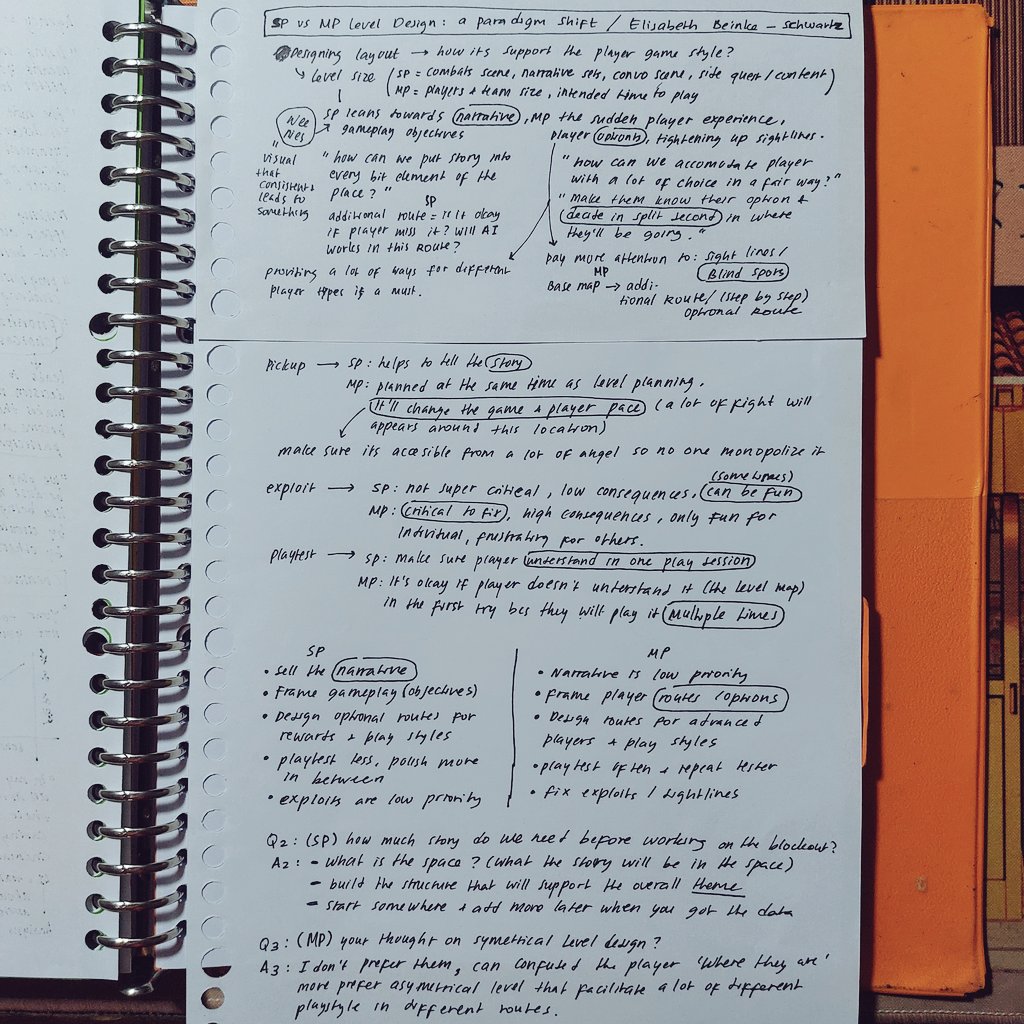 SP vs MP Level Design : a paradigm shift / Elisabeth Beinke - Schwartz
Designing layout → how its support the player game style?
↳ Level size (SP = combats scene, narrative sets, convo scene, side quest / content)
MP = players + team size, intended time to play
SP leans towards narrative, MP the sudden player experience,
gameplay objectives
player options, tightening up sightlines.
"
visual
that
consistent &
leads to
something
"how can we put story into
every bit element of the
place?"
SP
additional route = is it okay
if player miss it? Will AI
works in this route?
providing a lot of ways for different
player types if a must.
"how can we accomodate player
with a lot of choice in a fair way?"
"make them know their option &
decide in split second in where
they'll be going."
pay more attention to: sight lines /
MP Blind spots
Base map → addi-
tional Route / (step by step)
optional Route
Pickup → SP: helps to tell the story
MP: planned at the same time as level planning.
It'll change the game & player pace (a lot of fight will
appears around this location)
make sure its accesible from a lot of angel so no one monopolize it
(sometimes)
exploit → SP: not super critical, low consequences, can be fun
MP: critical to fix, high consequences, only fun for
Individual, frustrating for others.
playtest → SP: make sure player understand in one play session
MP: It's okay if player doesn't understand it (the level map)
in the first try bcs they will play it multiple times
SP
• Sell the narrative
• Frame gameplay (objectives)
• Design optional routes for
rewards + play styles
• playtest less, polish more
in between
• exploits are low priority
MP
• Narrative is low priority
• Frame player routes / options
• Design routes for advanced
players + play styles
• playtest often + repeat tester
• Fix exploits / sightlines
Q2: (SP) how much story do we need before working on the blockout?
A2: - What is the space? (what the story will be in the space)
- build the structure that will support the overall theme
- start somewhere & add more later when you got the data
Q3: (MP) your thought on symetrical level design?
A3: I don't prefer them, can confused the player 'where they are'
more prefer asymetrical level that facilitate a lot of different
playstyle in different routes.